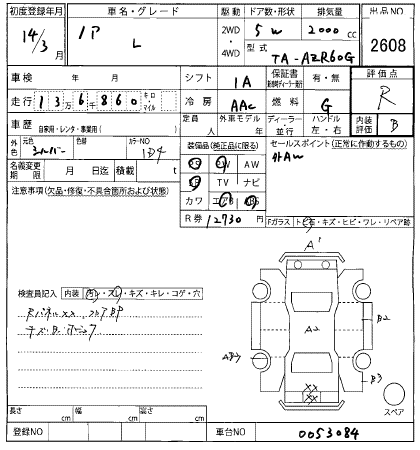 初度登録年月 車名・グレード 駆動 ドア数・形状 排気量 出品NO
14/3月 L 2WD 4WD 5W 2000cc 2608
型式 TA-AZR60G
車検 年 月 シフト 1A 保証書 有・無 評価点
走行 13万6千860 キロ・マイル 冷房 AAC 燃料 G R
車歴 自家用・レンタ・事業用( ) 定員 人 外車モデル 年 ディーラー・並行 ハンドル 左・右 内装評価 B
外色 元色 シルバー 色替 カラーNO 1D4 装備品(純正品に限る) セールスポイント(正常に作動するもの)
名義変更期限 月 日迄 積載 t PS PW AW 外AW
注意事項(欠品・修復・不具合箇所および状態) SR TV ナビ
カワ エアB ABS
R券 12730円 Fガラス トビ石・キズ・ヒビ・ワレ・リペア跡
A1
検査員記入 内装 汚レ・スレ・キズ・キレ・コゲ・穴
RパネルXX フロアBP
A2 B2
B3
XX
XX
スペア
長さ cm 幅 cm 高さ cm
登録NO 車台NO 0053084